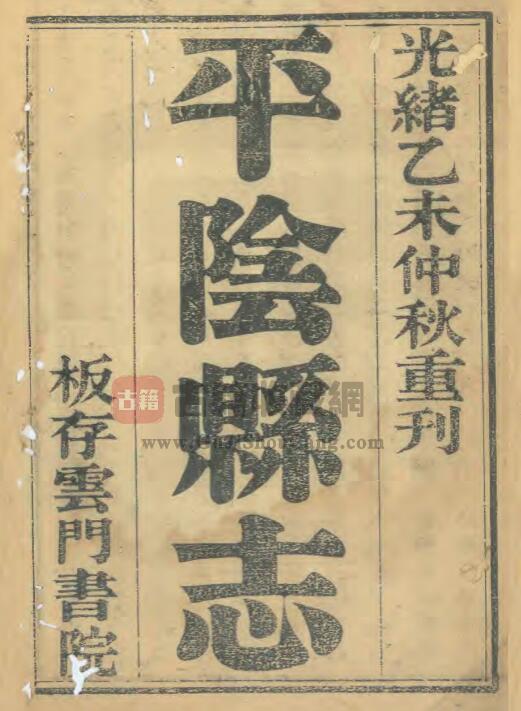 光緒乙未仲秋重刊
平陰縣志
板存雲門書院
古籍
網